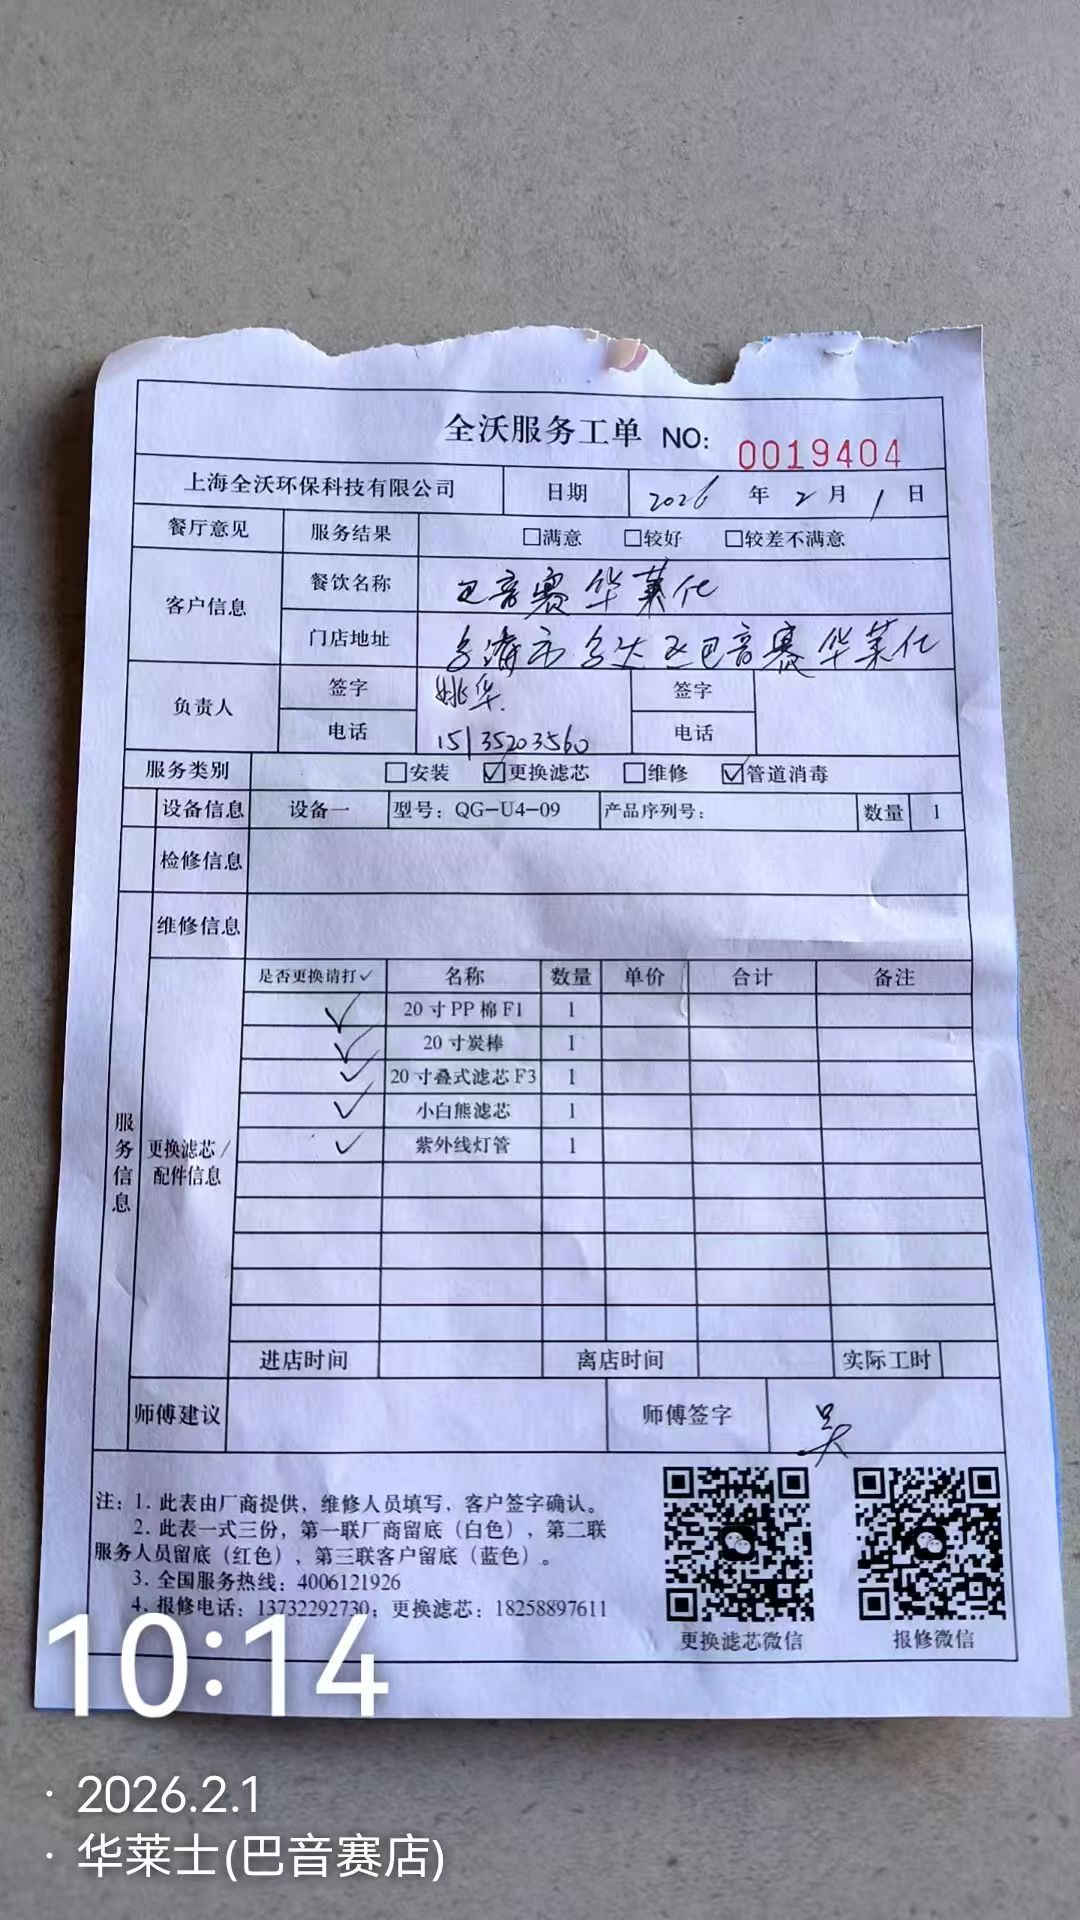 全沃服务工单 NO: 0019404
上海全沃环保科技有限公司 日期 2026 年 2 月 1 日
餐厅意见 服务结果 □满意 □较好 □较差不满意
客户信息 餐饮名称 巴音赛华莱仕
门店地址 乌海市乌达区巴音赛华莱仕
负责人 签字 姚华 签字
电话 15135203560 电话
服务类别 □安装 ☑更换滤芯 □维修 ☑管道消毒
设备信息 设备一 型号：QG-U4-09 产品序列号： 数量 1
检修信息
维修信息
服务信息
更换滤芯/配件信息
是否更换请打✓ 名称 数量 单价 合计 备注
✓ 20寸PP棉F1 1
✓ 20寸炭棒 1
✓ 20寸叠式滤芯F3 1
✓ 小白熊滤芯 1
✓ 紫外线灯管 1
进店时间 离店时间 实际工时
师傅建议 师傅签字 吴
注：1. 此表由厂商提供，维修人员填写，客户签字确认。
2. 此表一式三份，第一联厂商留底（白色），第二联
服务人员留底（红色），第三联客户留底（蓝色）。
3. 全国服务热线：4006121926
4. 报修电话：13732292730；更换滤芯：18258897611
更换滤芯微信 报修微信
10:14
· 2026.2.1
· 华莱士(巴音赛店)